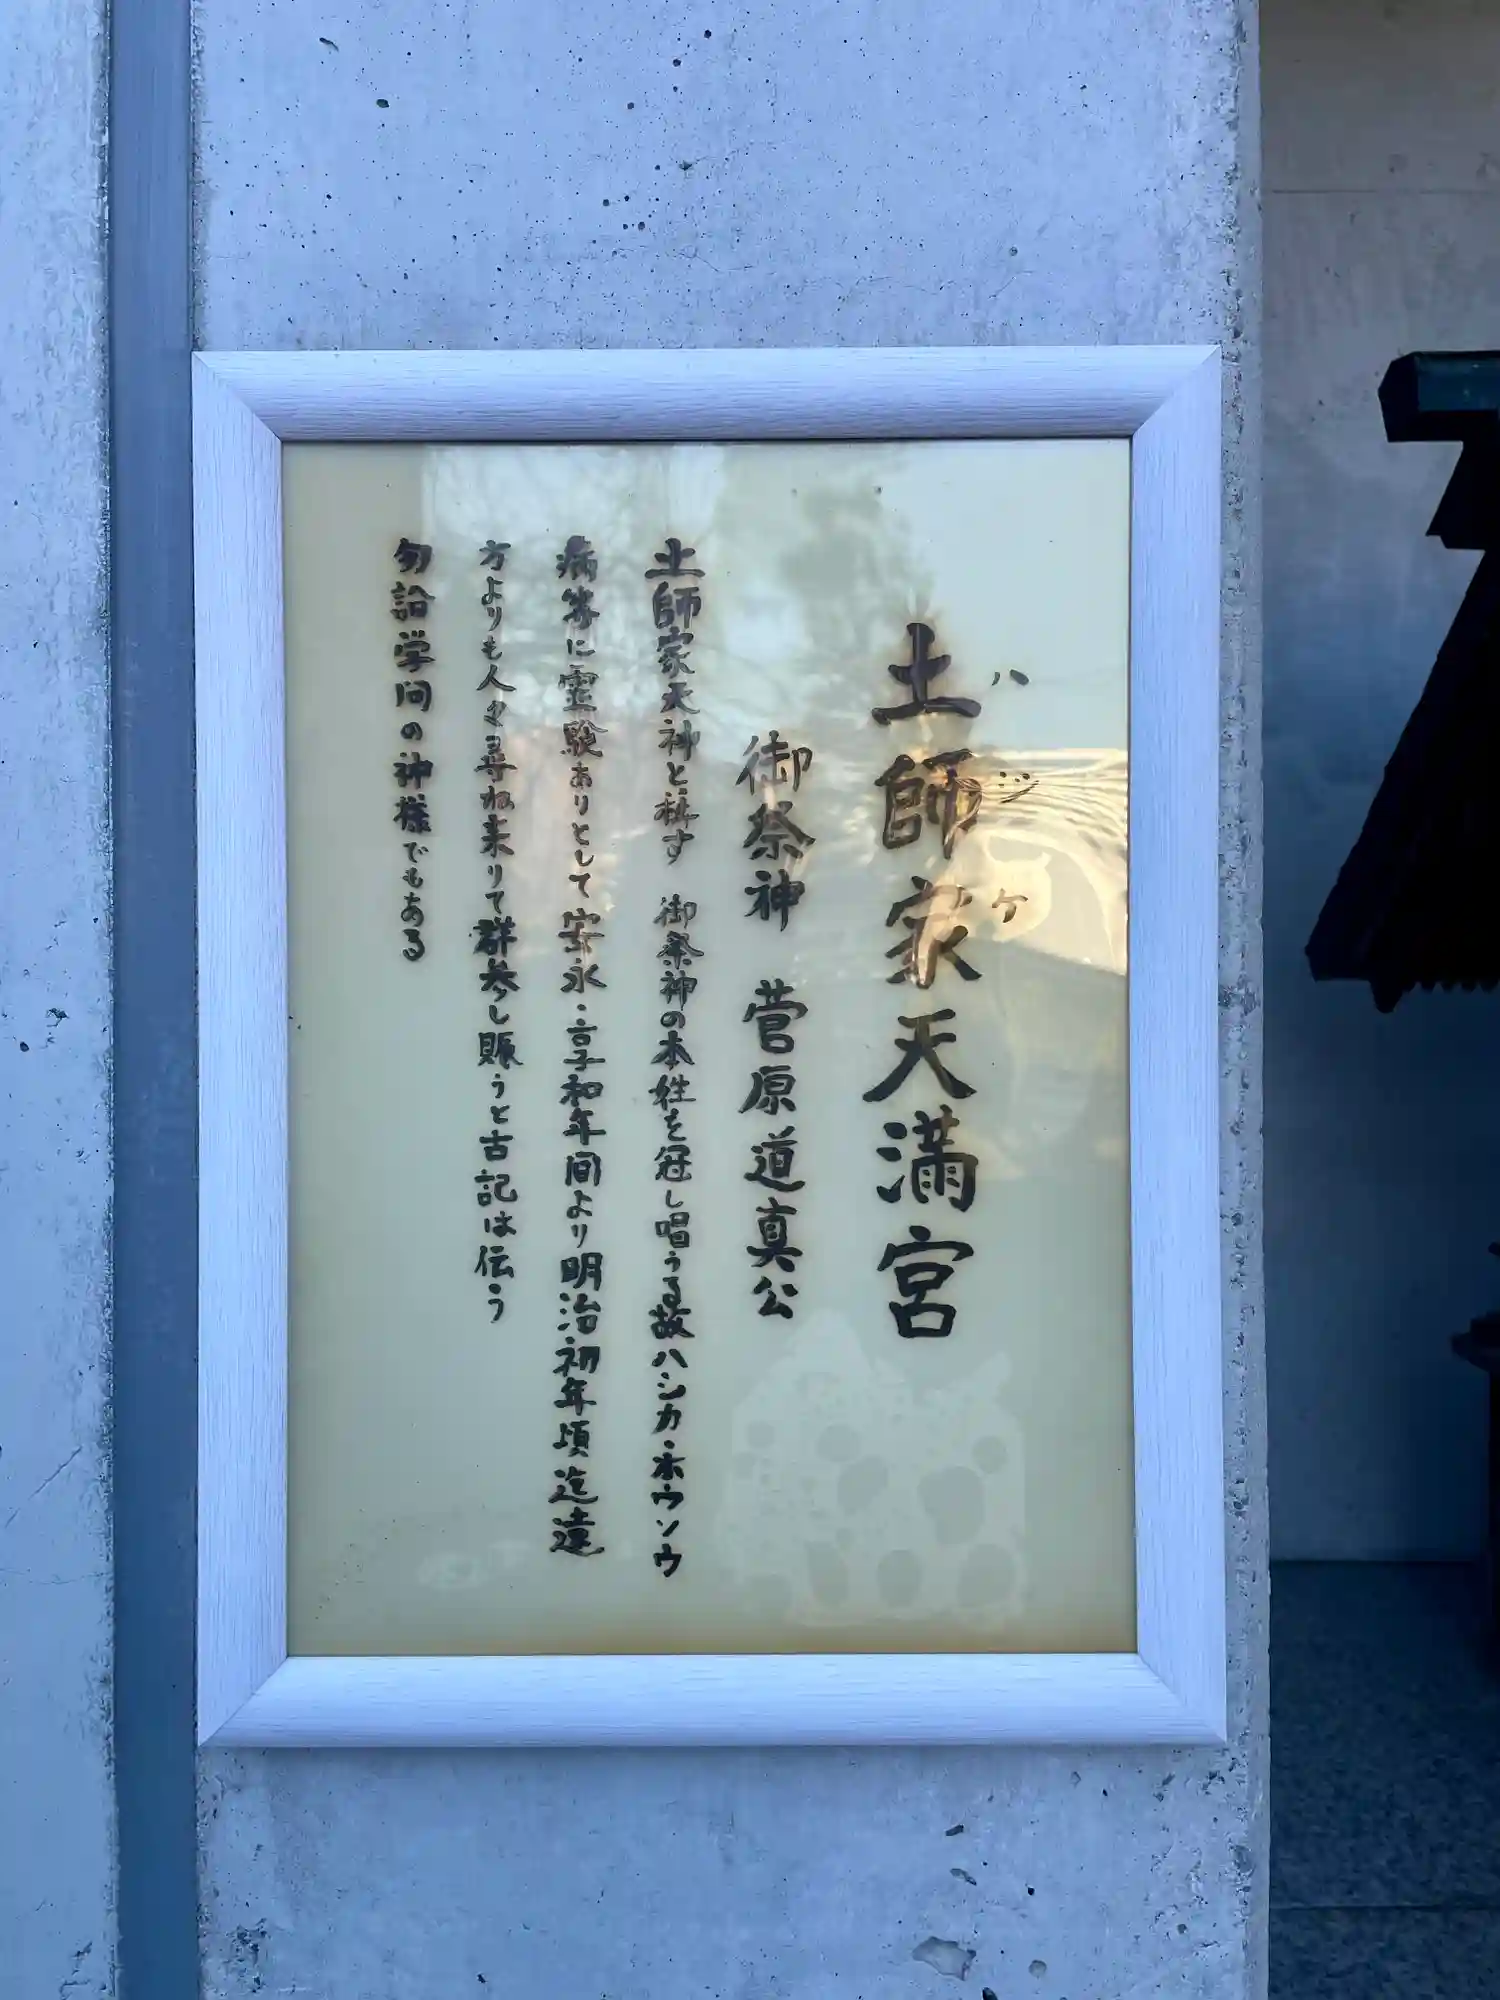 土師家天満宮
ハジケ
御祭神　菅原道真公
土師家天神と称す　御祭神の本姓を冠し唱うる故ハシカ・ホウソウ
病等に霊験ありとして安永・享和年間より明治初年頃迄遠
方よりも人々尋ね来りて群参し賑うと古記は伝う
勿論学問の神様でもある